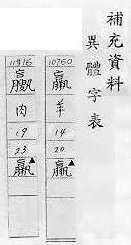 補充資料
異體字表
10760
羊
14
20
羸▲
11816
肉
19
23
羸▲